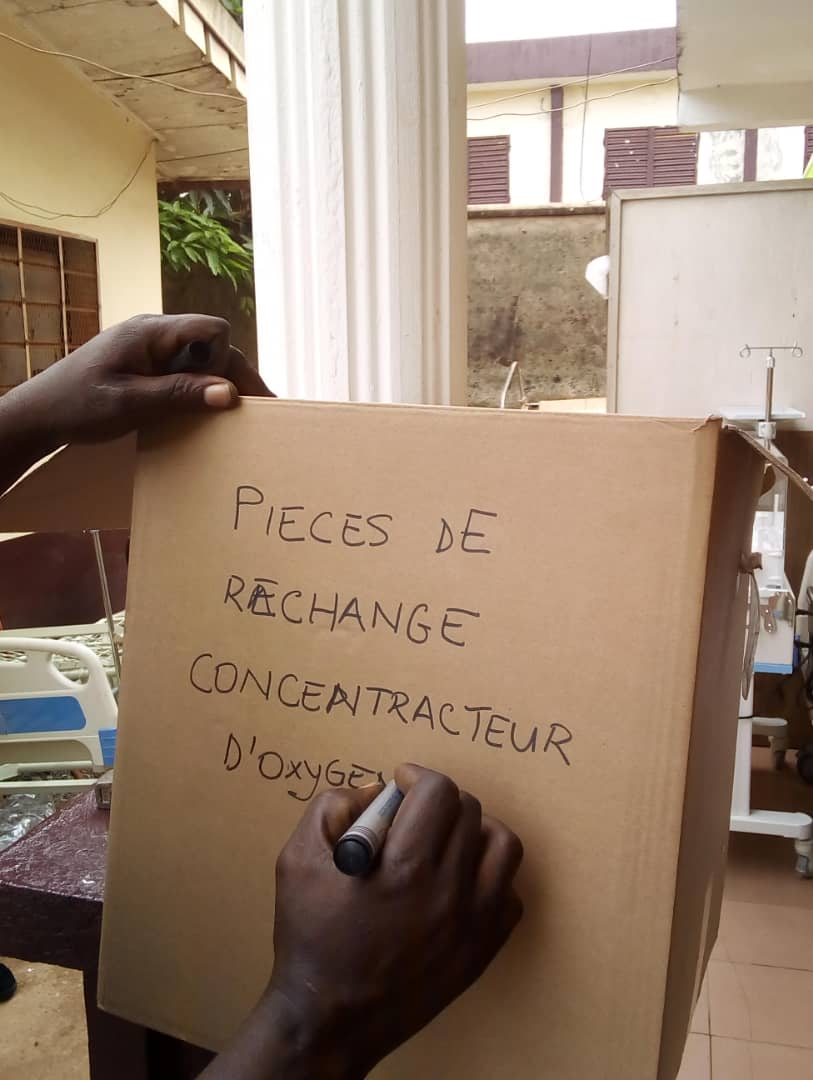 PIECES DE
RECHANGE
CONCENTRACTEUR
D'OXYGEN